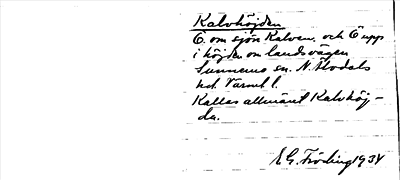 Kalvhöjden
Ö. om sjön Kalven. och Ö upp
i höjden om landsvägen
Sunnemo sn. N. Älvdals
hd. Värml l.
Kallas allmänt Kalvhöj-
da.
E G. Fröding 1934